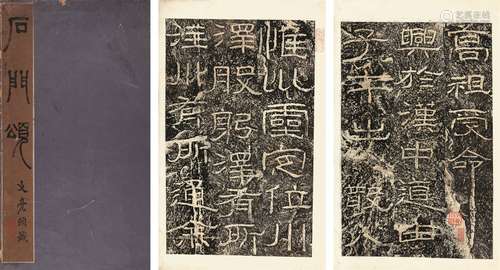 石門頌
惟巛靈定位川
澤股躬澤有所
注川有所通余
高祖受命
興於漢中道由
子午出散入